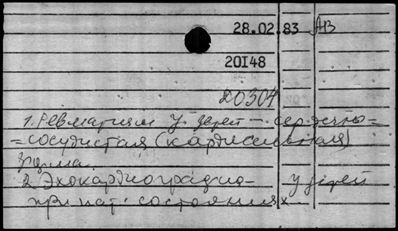 28.02.83 АВ
20I48
20304
1. Ревматизм у детей - сердечно-
=сосудистая (кардиальная)
форма.
2. Эхокардиография у детей
при пат. состояниях